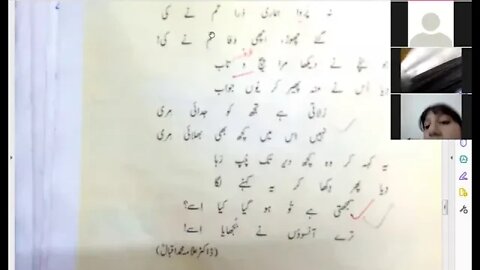 نہ پروا ہماری ذرا تم نے کی
گئے چھوڑ، اچھی وفا تم نے کی!
جو بچے نے دیکھا مرا پیچ و تاب
دیا اُس نے منہ پھیر کر یوں جواب
رُلاتی ہے تجھ کو جدائی مری
نہیں اس میں کچھ بھی بھلائی مری
یہ کہہ کر وہ کچھ دیر تک چُپ رہا
دیا پھر دکھا کر یہ کہنے لگا
سمجھتی ہے تُو ہو گیا کیا اسے؟
ترے آنسوؤں نے بُجھایا اسے!
(ڈاکٹر علامہ محمد اقبالؒ)